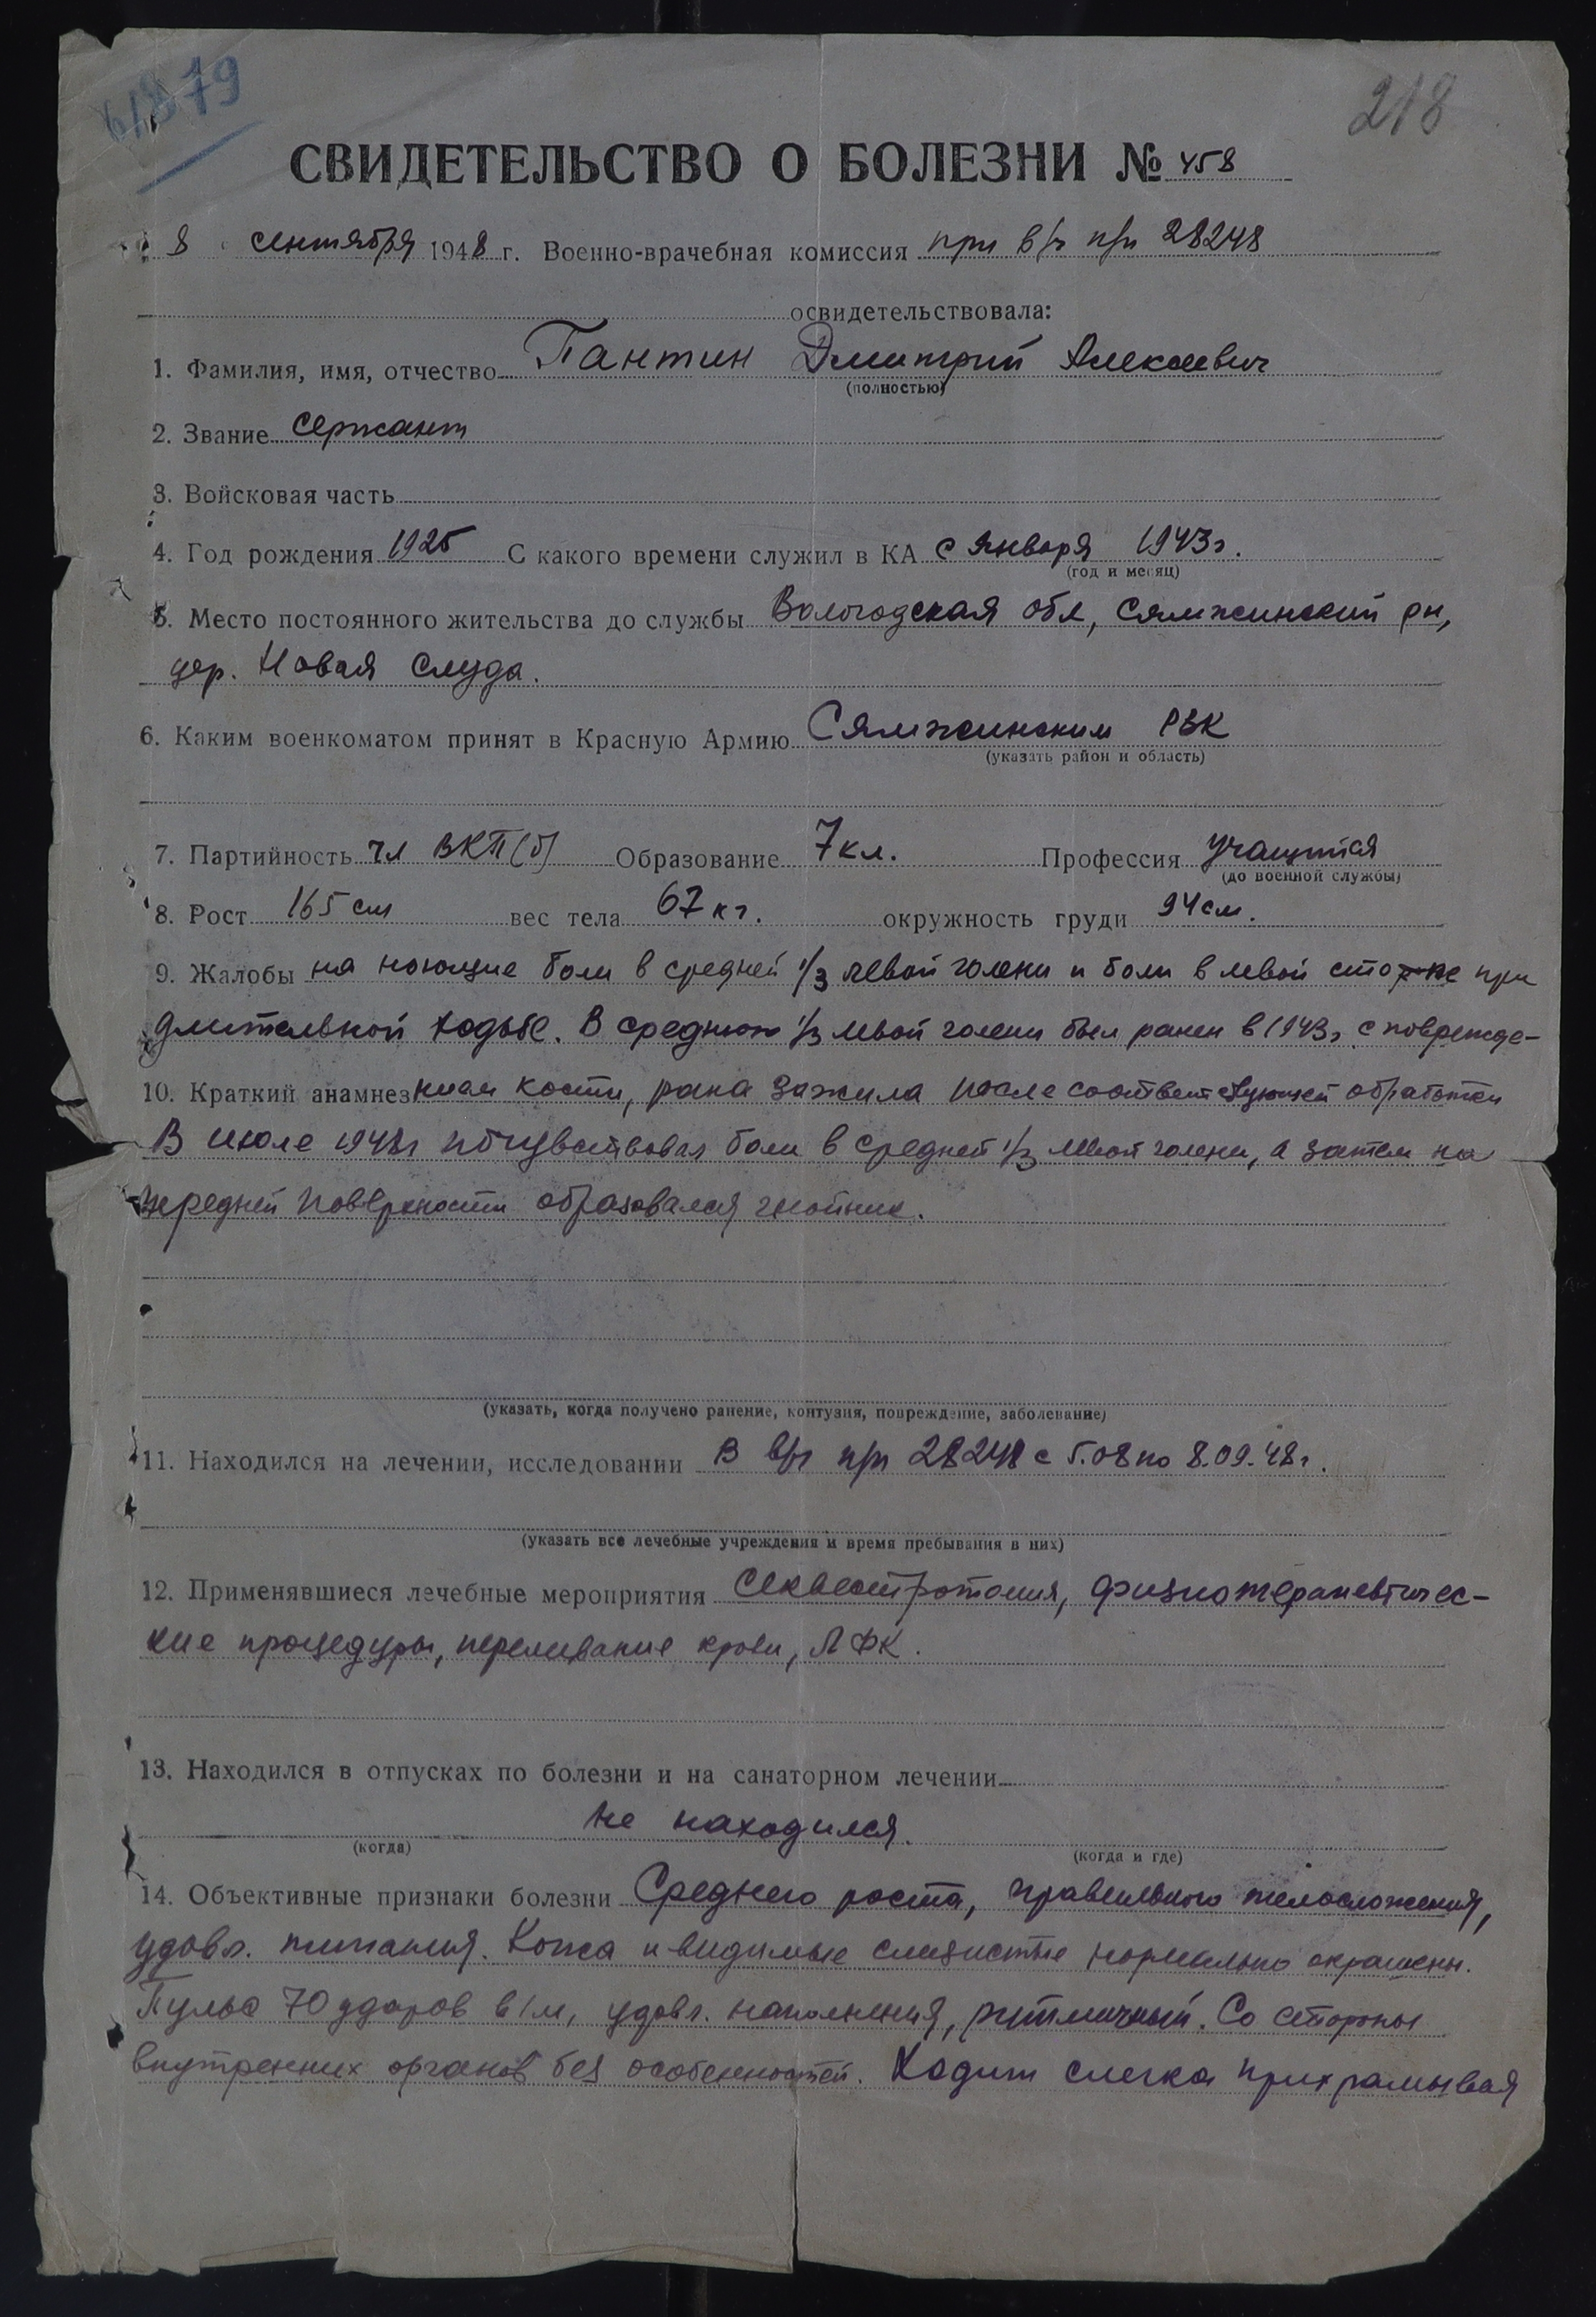 61879
218
СВИДЕТЕЛЬСТВО О БОЛЕЗНИ № 458
8 сентября 1948 г. Военно-врачебная комиссия при в/ч п/п 28248
освидетельствовала:
1. Фамилия, имя, отчество Пантин Дмитрий Алексеевич
(полностью)
2. Звание сержант
3. Войсковая часть
4. Год рождения 1925 С какого времени служил в КА с января 1943г.
(год и месяц)
5. Место постоянного жительства до службы Вологодская обл, Сямженский рн,
дер. Новая Слуда.
6. Каким военкоматом принят в Красную Армию Сямженским РВК
(указать район и область)
7. Партийность чл ВКП(б) Образование 7 кл. Профессия учащийся
(до военной службы)
8. Рост 165 см вес тела 67 кг. окружность груди 94 см.
9. Жалобы на ноющие боли в средней 1/3 левой голени и боли в левой стопе при
длительной ходьбе. В среднюю 1/3 левой голени был ранен в 1943г. с поврежде-
10. Краткий анамнез нием кости, рана зажила после соответствующей обработки
В июле 1948г почувствовал боли в средней 1/3 левой голени, а затем на
передней поверхности образовался гнойник.
(указать, когда получено ранение, контузия, повреждение, заболевание)
11. Находился на лечении, исследовании В в/ч п/п 28248 с 5.08 по 8.09.48г.
(указать все лечебные учреждения и время пребывания в них)
12. Применявшиеся лечебные мероприятия Секвестротомия, физиотерапевтичес-
кие процедуры, переливание крови, ЛФК.
13. Находился в отпусках по болезни и на санаторном лечении
не находился.
(когда) (когда и где)
14. Объективные признаки болезни Среднего роста, правильного телосложения,
удовл. питания. Кожа и видимые слизистые нормально окрашены.
Пульс 70 ударов в 1м, удовл. наполнения, ритмичный. Со стороны
внутренних органов без особенностей. Ходит слегка прихрамывая